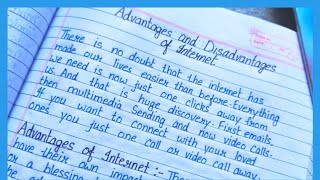 Advantages and Disadvantages
of Internet
There is no doubt that the internet has
made our lives easier than before. Everything
we need is now just one clicks away from
us. And that is huge discovery. First emails,
then multimedia Sending and now video calls.
If you want to connect with your loved
ones you just one call or video call away.
Advantages of Internet :-
have their own impac
or a blessing